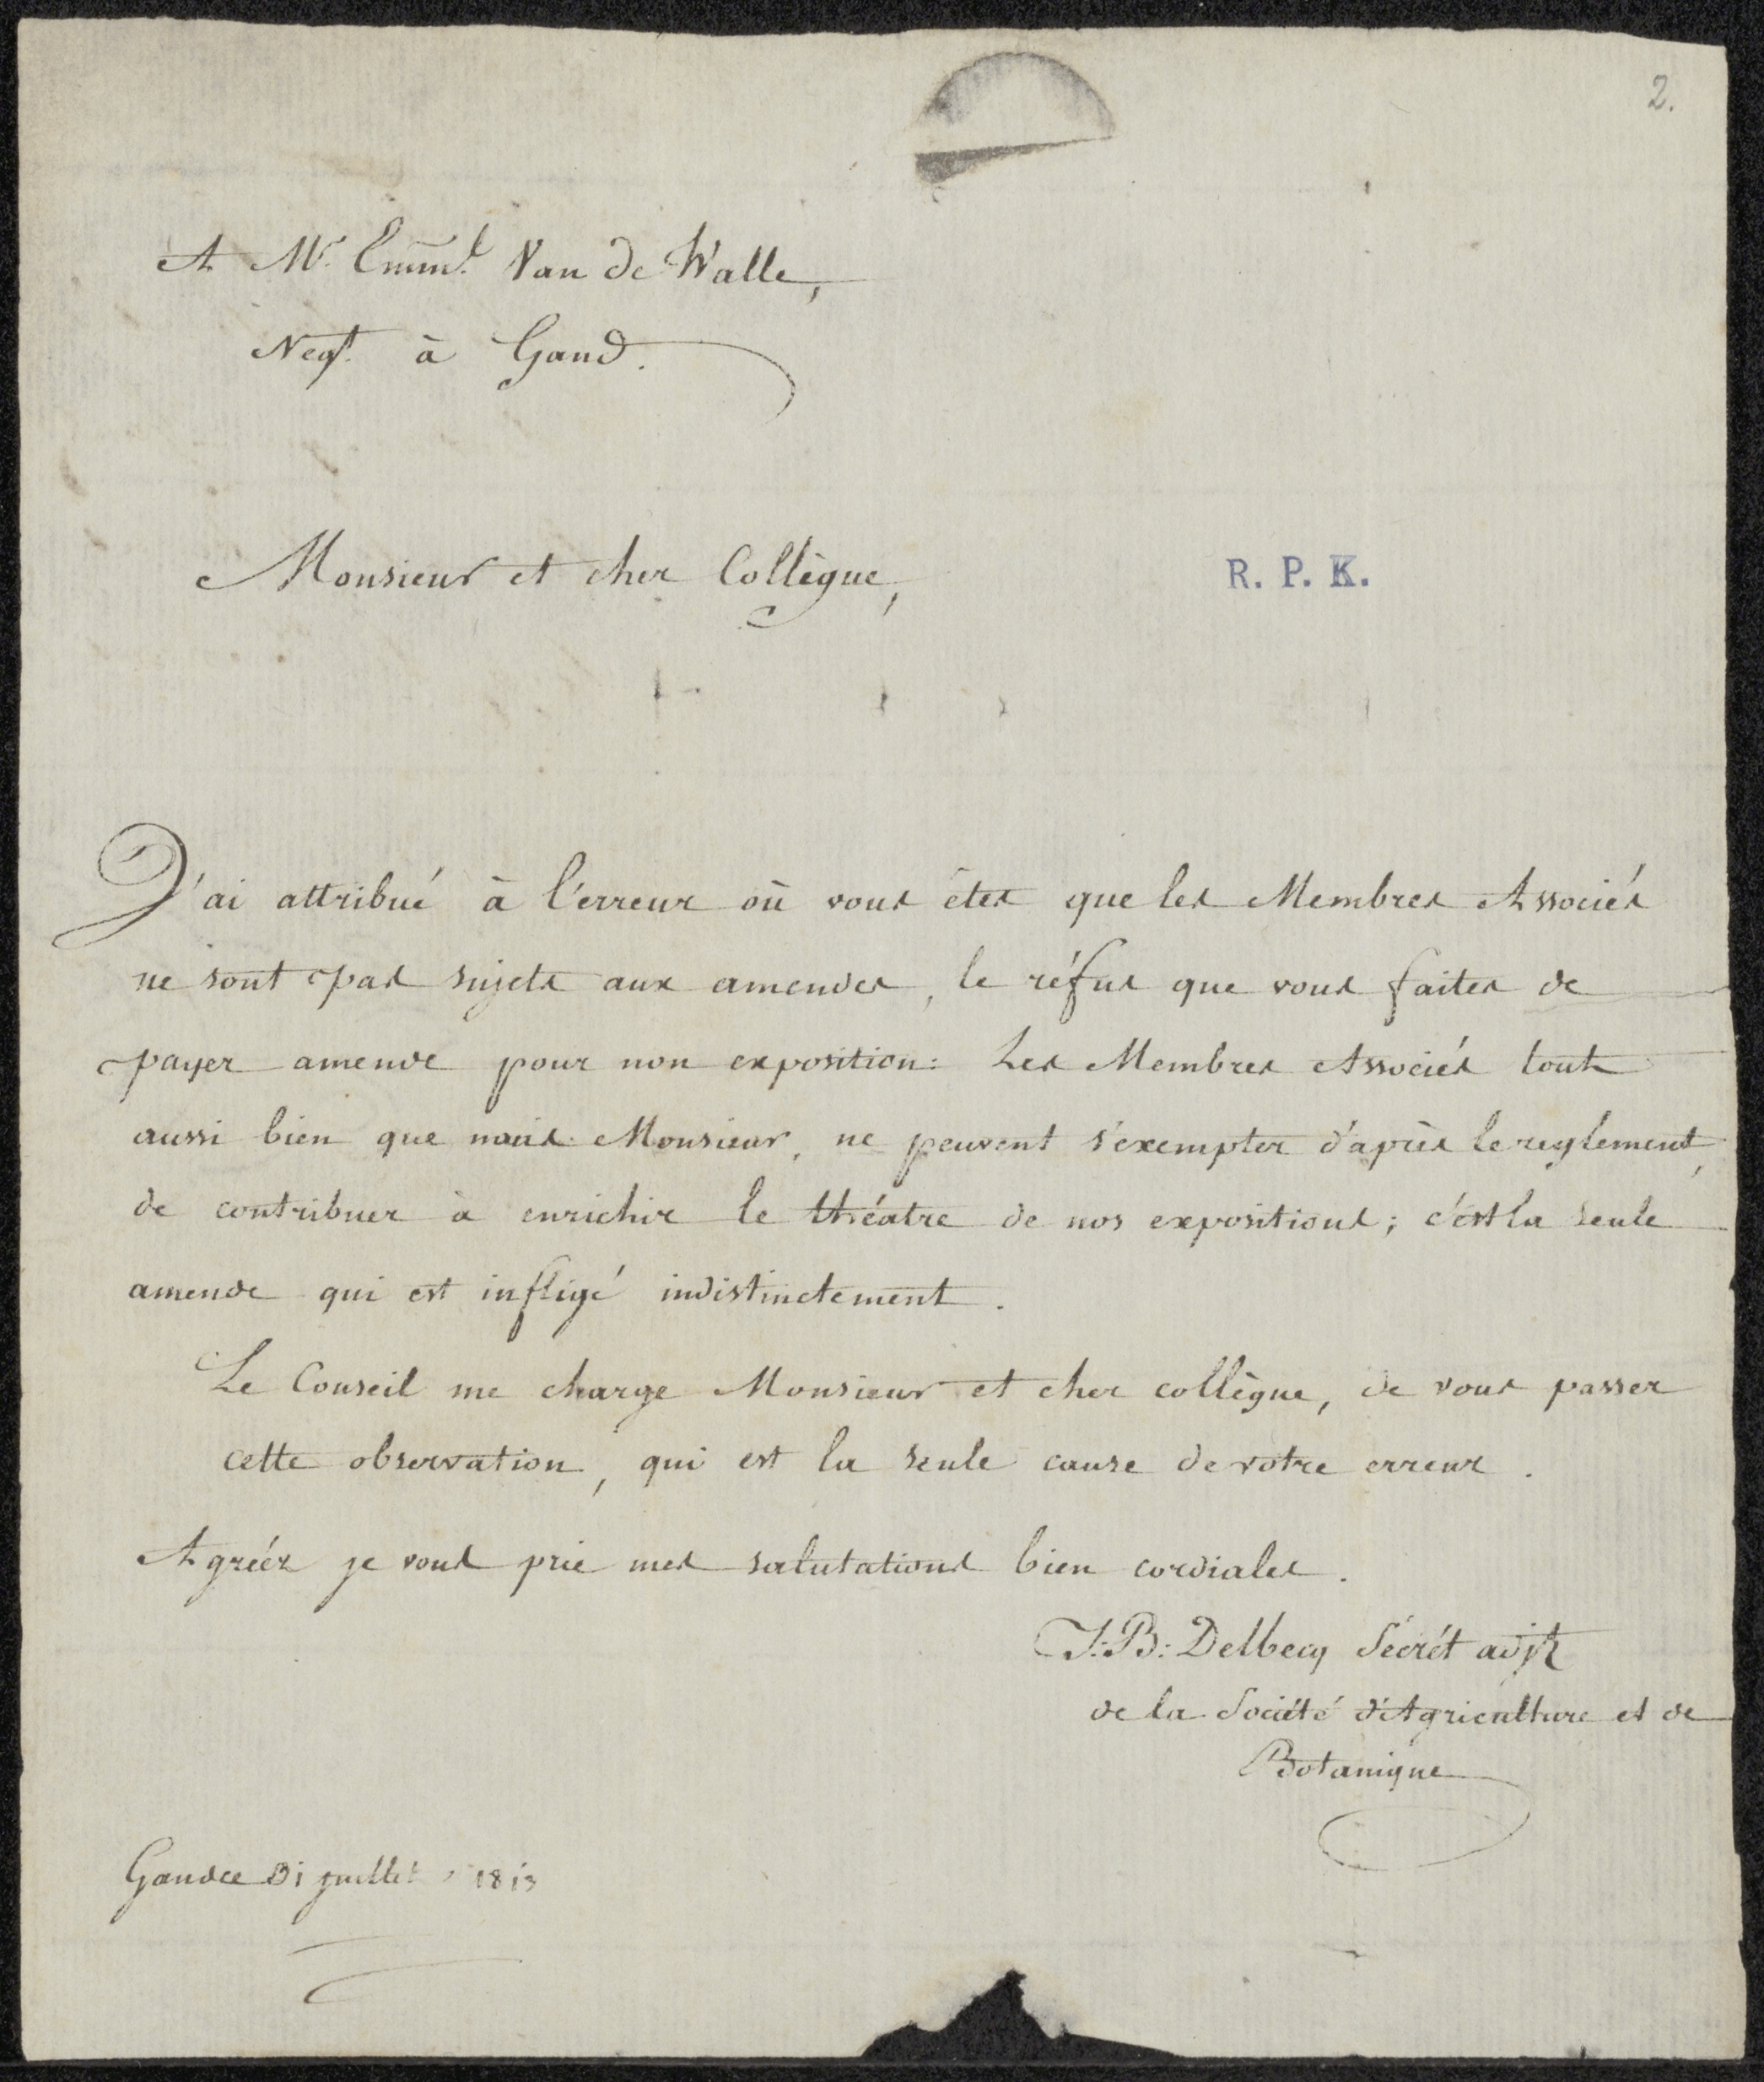 2.
A Mr. Emml. Van de Walle,
Negt. à Gand.
Monsieur et cher Collègue,
R. P. K.
J'ai attribué à l'érreur où vous étes que les Membres Associés
ne sont pas sujets aux amendes, le réfus que vous faites de
payer amende pour non exposition: Les Membres Associés tout
aussi bien que nous Monsieur, ne peuvent s'exempter d'après le reglement,
de contribuer à enrichir le théatre de nos expositions; c'est la seule
amende qui est infligé indistinctement.
Le Conseil me charge Monsieur et cher collègue, de vous passer
cette observation, qui est la seule cause de votre erreur.
Agréez je vous prie mes salutations bien cordiales.
J: B: Delbecq Sécrét adjt
de la Société d'Agriculture et de
Botanique
Gand ce 31 juillet 1813